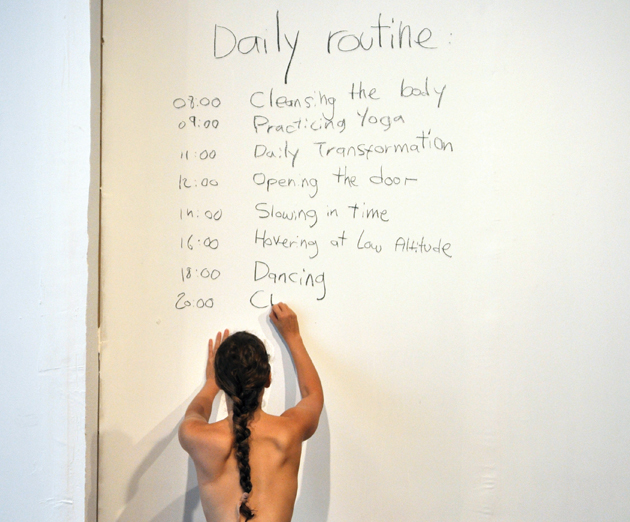 Daily routine:
08:00 Cleansing the body
09:00 Practicing Yoga
11:00 Daily Transformation
12:00 Opening the door
14:00 Slowing in time
16:00 Hovering at Low Altitude
18:00 Dancing
20:00 Cl